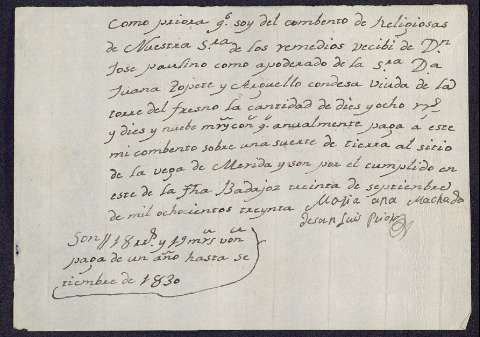 Como priora q.e soy del combento de Religiosas
de Nuestra S.ra de los remedios recibi de D.n
Jose paulino como apoderado de la S.ra D.a
Juana Topete y Arguello condesa viuda de la
torre del fresno la cantidad de dies y ocho rr.s
y dies y nuebe mrs con q.e anualmente paga á este
mi combento sobre una suerte de tierra al sitio
de la vega de Merida y son por el cumplido en
este de la fha Badajoz treinta de septiembre
de mil ochocientos treynta Maria Ana Machado
de san Luis Priora
Son 18 rr.s y 19 mrs von
paga de un año hasta se
tiembre de 1830